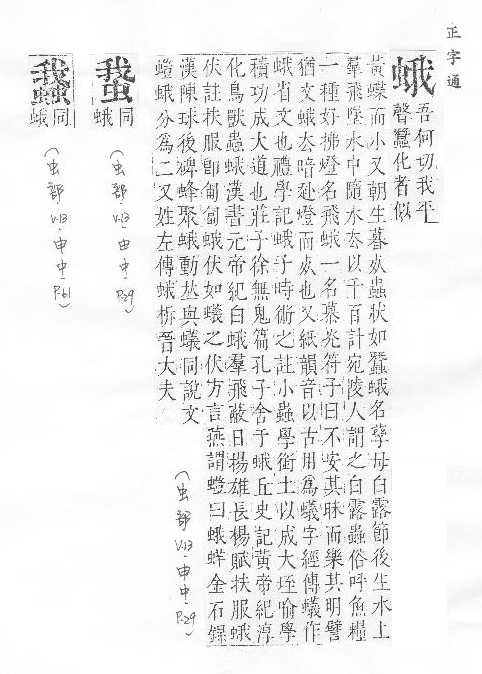 正字通
蛾
吾何切我平
聲蠶化者似
黃蝶而小又朝生暮𣦸蟲狀如蠶蛾名孳母白露節後生水上
羣飛墜水中隨水厺以千百計宛陵人謂之白露蟲俗呼魚糧
一種好拂燈名飛蛾一名慕灮符子曰不安其昧而樂其明譬
猶文蛾厺暗赴燈而𣦸也又紙韻音以古用爲蟻字經傳蟻作
蛾省文也禮學記蛾子時術之註小蟲學銜土以成大垤喻學
積功成大道也莊子徐無鬼篇孔子舍于蛾丘史記黃帝紀淳
化鳥獸蟲蛾漢書元帝紀白蛾羣飛蔽日揚雄長楊賦扶服蛾
伏註扶服卽匍匐蛾伏如蟻之伏方言燕謂螘曰蛾蛘金石錄
漢陳球後碑蜂聚蛾動𠀤與蟻同說文
螘蛾分爲二又姓左傳蛾析晉大夫
(虫部 V.13·申中·P.29)
䖸
同蛾
(虫部 V.13·申中·P.39)
𧕏
同蛾
(虫部 V.13·申中·P.61)